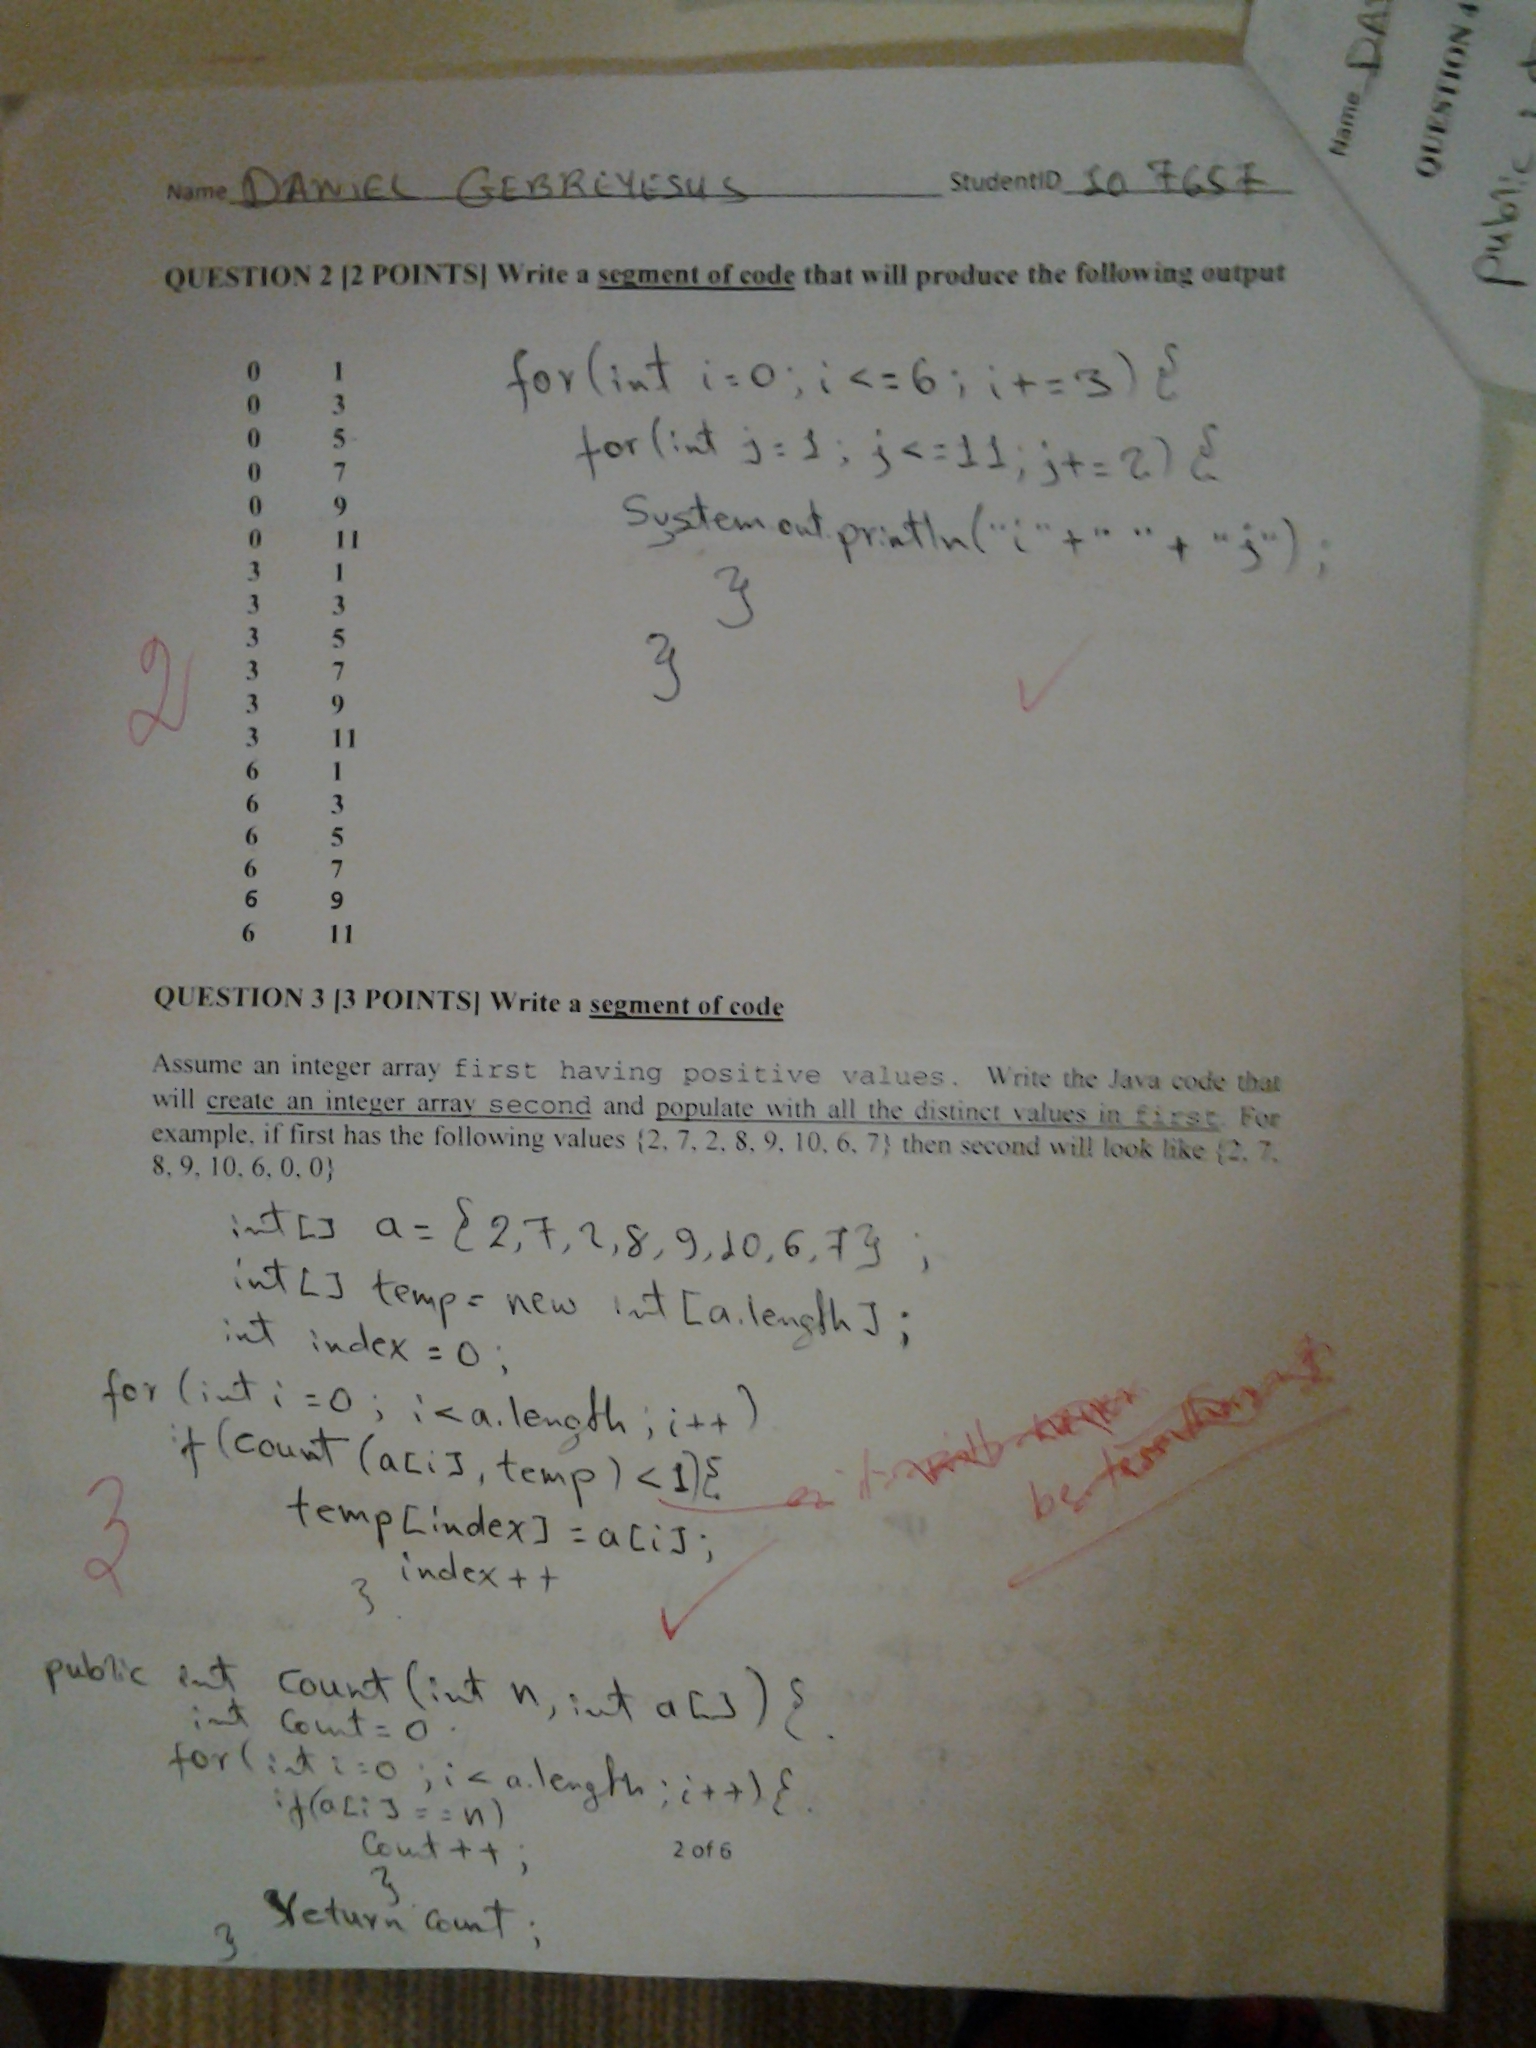 Name DANIEL GEBREYESUS StudentID 107657
QUESTION 2 [2 POINTS] Write a segment of code that will produce the following output
0 1
0 3
0 5
0 7
0 9
0 11
3 1
3 3
3 5
3 7
3 9
3 11
6 1
6 3
6 5
6 7
6 9
6 11
for(int i=0; i<=6; i+=3) {
for(int j=1; j<=11; j+=2) {
System.out.println("i"+" "+"j");
}
}
2
QUESTION 3 [3 POINTS] Write a segment of code
Assume an integer array first having positive values. Write the Java code that
will create an integer array second and populate with all the distinct values in first. For
example, if first has the following values {2, 7, 2, 8, 9, 10, 6, 7} then second will look like {2, 7,
8, 9, 10, 6, 0, 0}
int[] a = {2,7,2,8,9,10,6,7} ;
int[] temp= new int[a.length];
int index = 0;
for (int i=0; i<a.length; i++)
if(count (a[i], temp) <1){
temp[index] = a[i];
index++
}
3
public int count(int n, int a[]) {
int count=0
for(int i=0; i<a.length; i++) {
if(a[i]==n)
count++;
}
return count;
}
2 of 6
Name DA
QUESTION 4
public